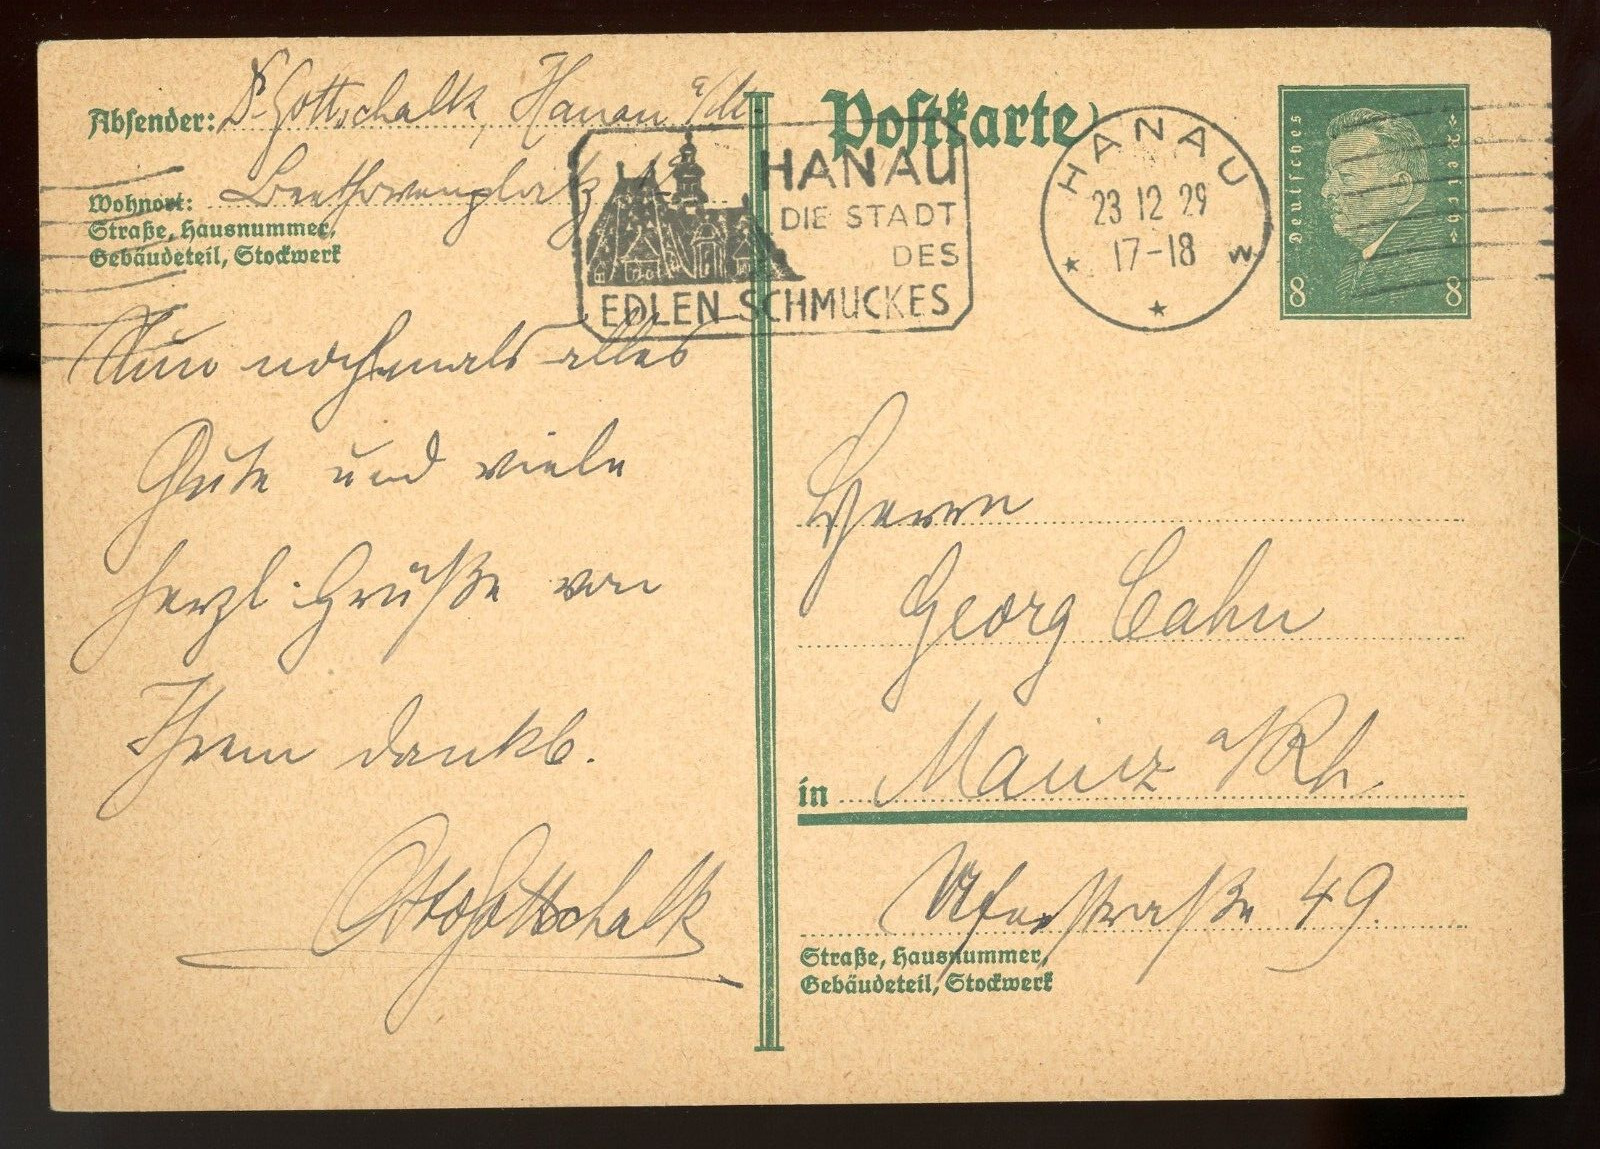 Absender: Dr. Gottschalk, Hanau a/M.
Wohnort: Beethovenplatz
Straße, Hausnummer,
Gebäudeteil, Stockwerk
Postkarte
HANAU
DIE STADT
DES
EDLEN SCHMUCKES
HANAU
23 12 29
17-18
w
Deutsches
Reich
8 8
Nun nochmals alles
Gute und viele
herzl. Grüße von
Ihrem dankb.
Otto Gottschalk
Herrn
Georg Cahn
in Mainz a/Rh.
Uferstraße 49.
Straße, Hausnummer,
Gebäudeteil, Stockwerk